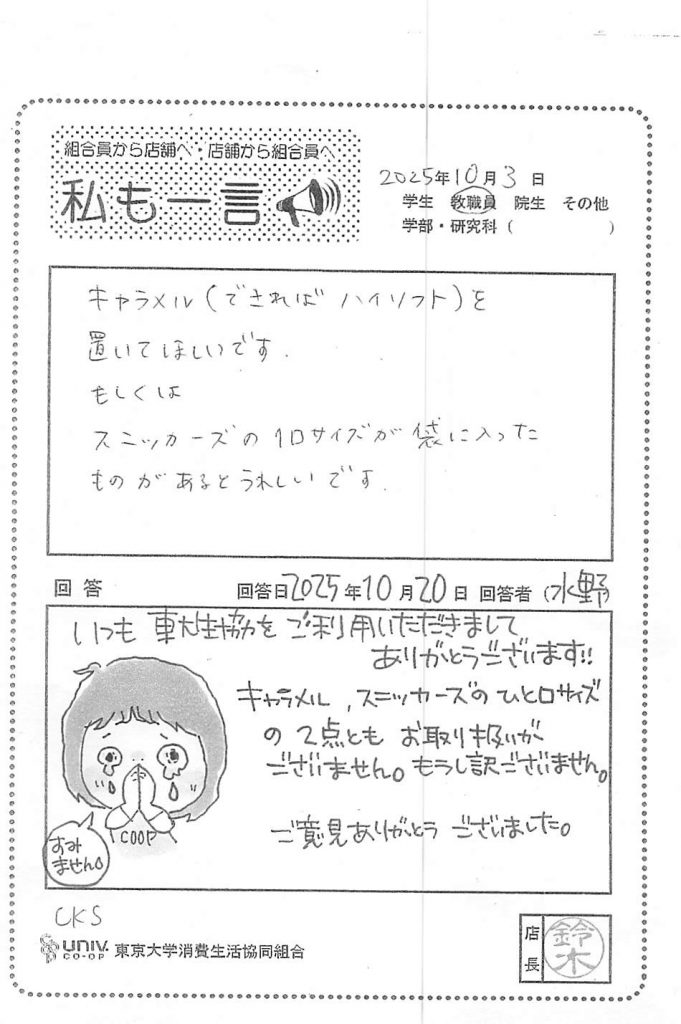 組合員から店舗へ・店舗から組合員へ
私も一言
2025年10月3日
学生 教職員 院生 その他
学部・研究科( )
キャラメル(できれば ハイソフト)を
置いてほしいです.
もしくは
スニッカーズの 1口サイズが 袋に入った
ものがあるとうれしいです.
回答 回答日2025年10月20日 回答者(水野)
いつも 東大生協を ご利用いただきまして
ありがとうございます!!
キャラメル, スニッカーズの ひと口サイズ
の 2点とも お取り扱いが
ございません。もうし訳ございません。
ご意見ありがとう ございました。
COOP
すみ
ません。
CKS
UNIV.
CO-OP
東京大学消費生活協同組合
店長
鈴木